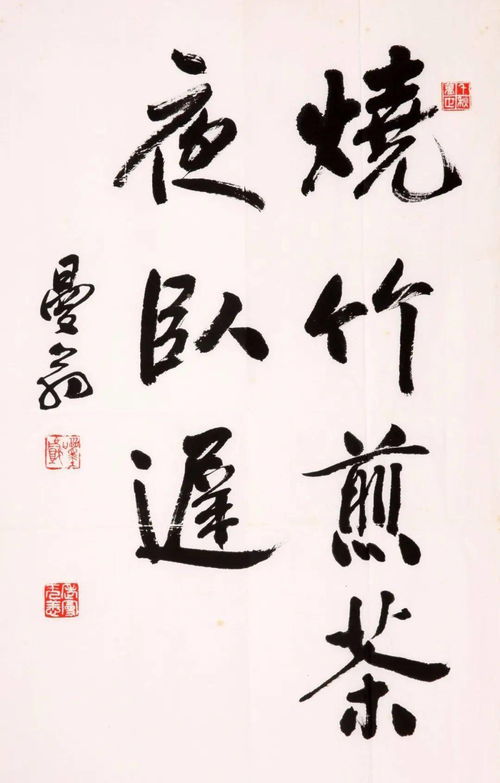 燒竹煎茶
夜臥遲
曼翁